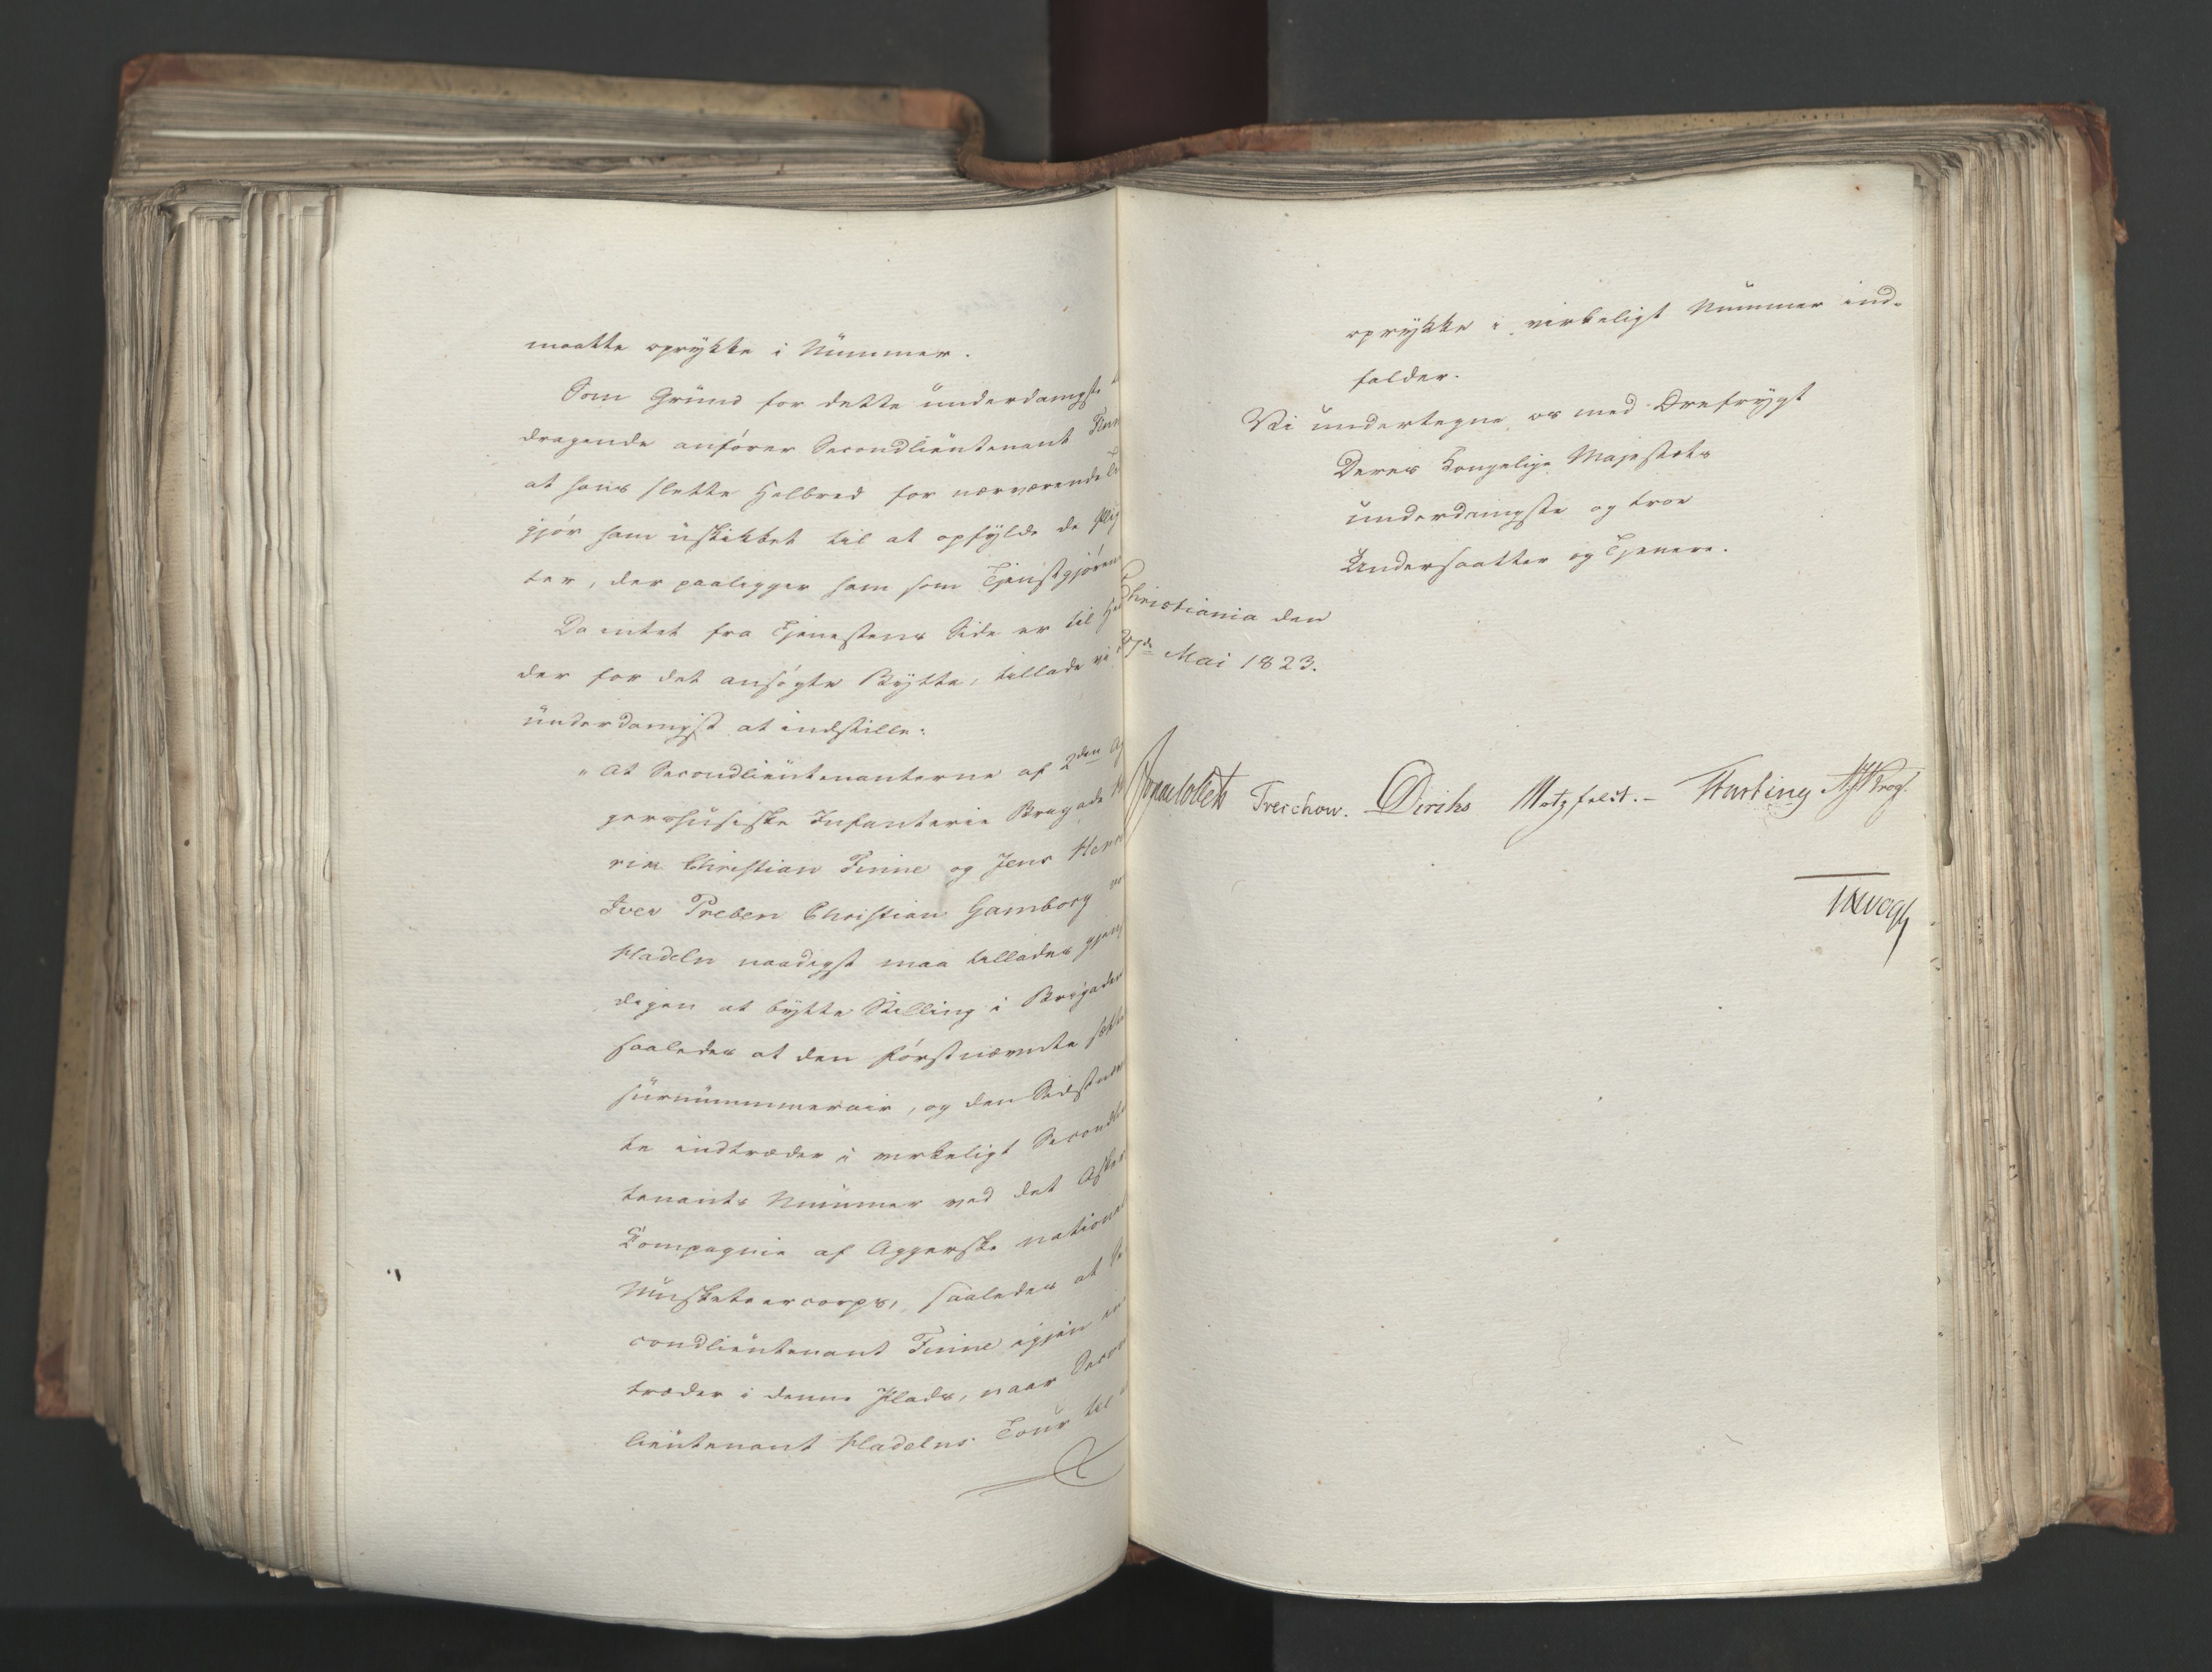 maatte oprykke i Nummer.
Som Grund for dette underdanigste
dragende anfører Secondlieutenant Finn
at hans slette Helbred for nærværende
gjør ham uskikket til at opfylde de Plig
ter, der paaligger ham som Tjenstgjøren
Da intet fra Tjenestens Side er til Hin
der for det ansøgte Bytte, tillade vi
underdanigst at indstille:
"At Secondlieutenanterne af 2den Ag
gershusiske Infanterie Brigade
Christian Finne og Jens
Iver Preben Christian Gamborg
Hadeln naadigst maa tillades gjen
digen at bytte Stilling i Brigaden
saaledes at den førstnævnte sættes
surnummerair, og den Sidstnævn
te indtræder i virkeligt Secondlieu
tenants Nummer ved det Asker
Kompagnie af Aggerske national
Musketeercorps, saaledes at Se
condlieutenant Finne igjen ind
træder i denne Plads, naar Second
lieutenant Hadelns Tour til
oprykke i virkeligt Nummer ind-
falder.
Vi undertegne os med Ærefrygt
Deres Kongelige Majestæts
underdanigste og troe
Undersaatter og Tjenere.
Christiania den
27de Mai 1823.
Jonas Collett Treschow. Diriks Motzfeldt.- Fasting Krog.